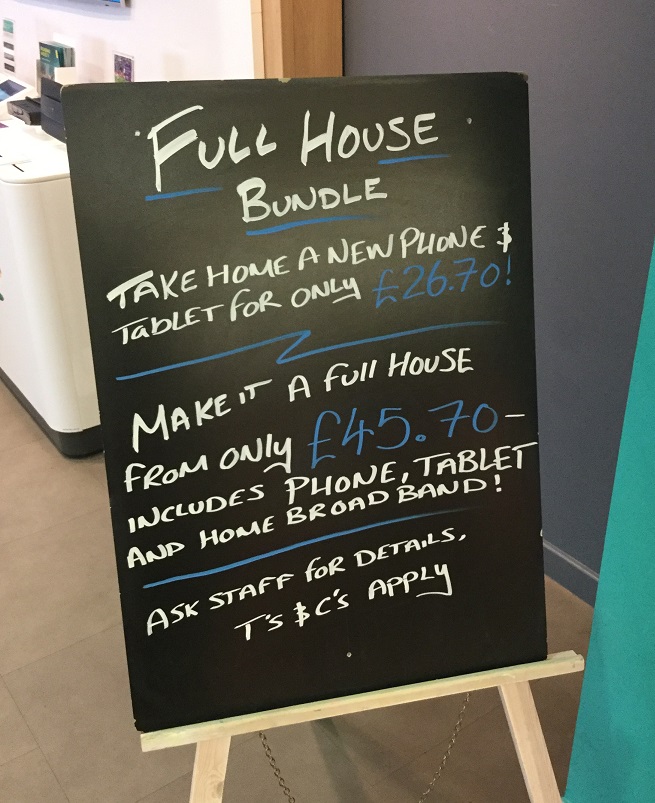 FULL HOUSE
BUNDLE
TAKE HOME A NEW PHONE &
TABLET FOR ONLY £26.70!
MAKE IT A FULL HOUSE
FROM ONLY £45.70-
INCLUDES PHONE, TABLET
AND HOME BROADBAND!
ASK STAFF FOR DETAILS,
T'S & C'S APPLY